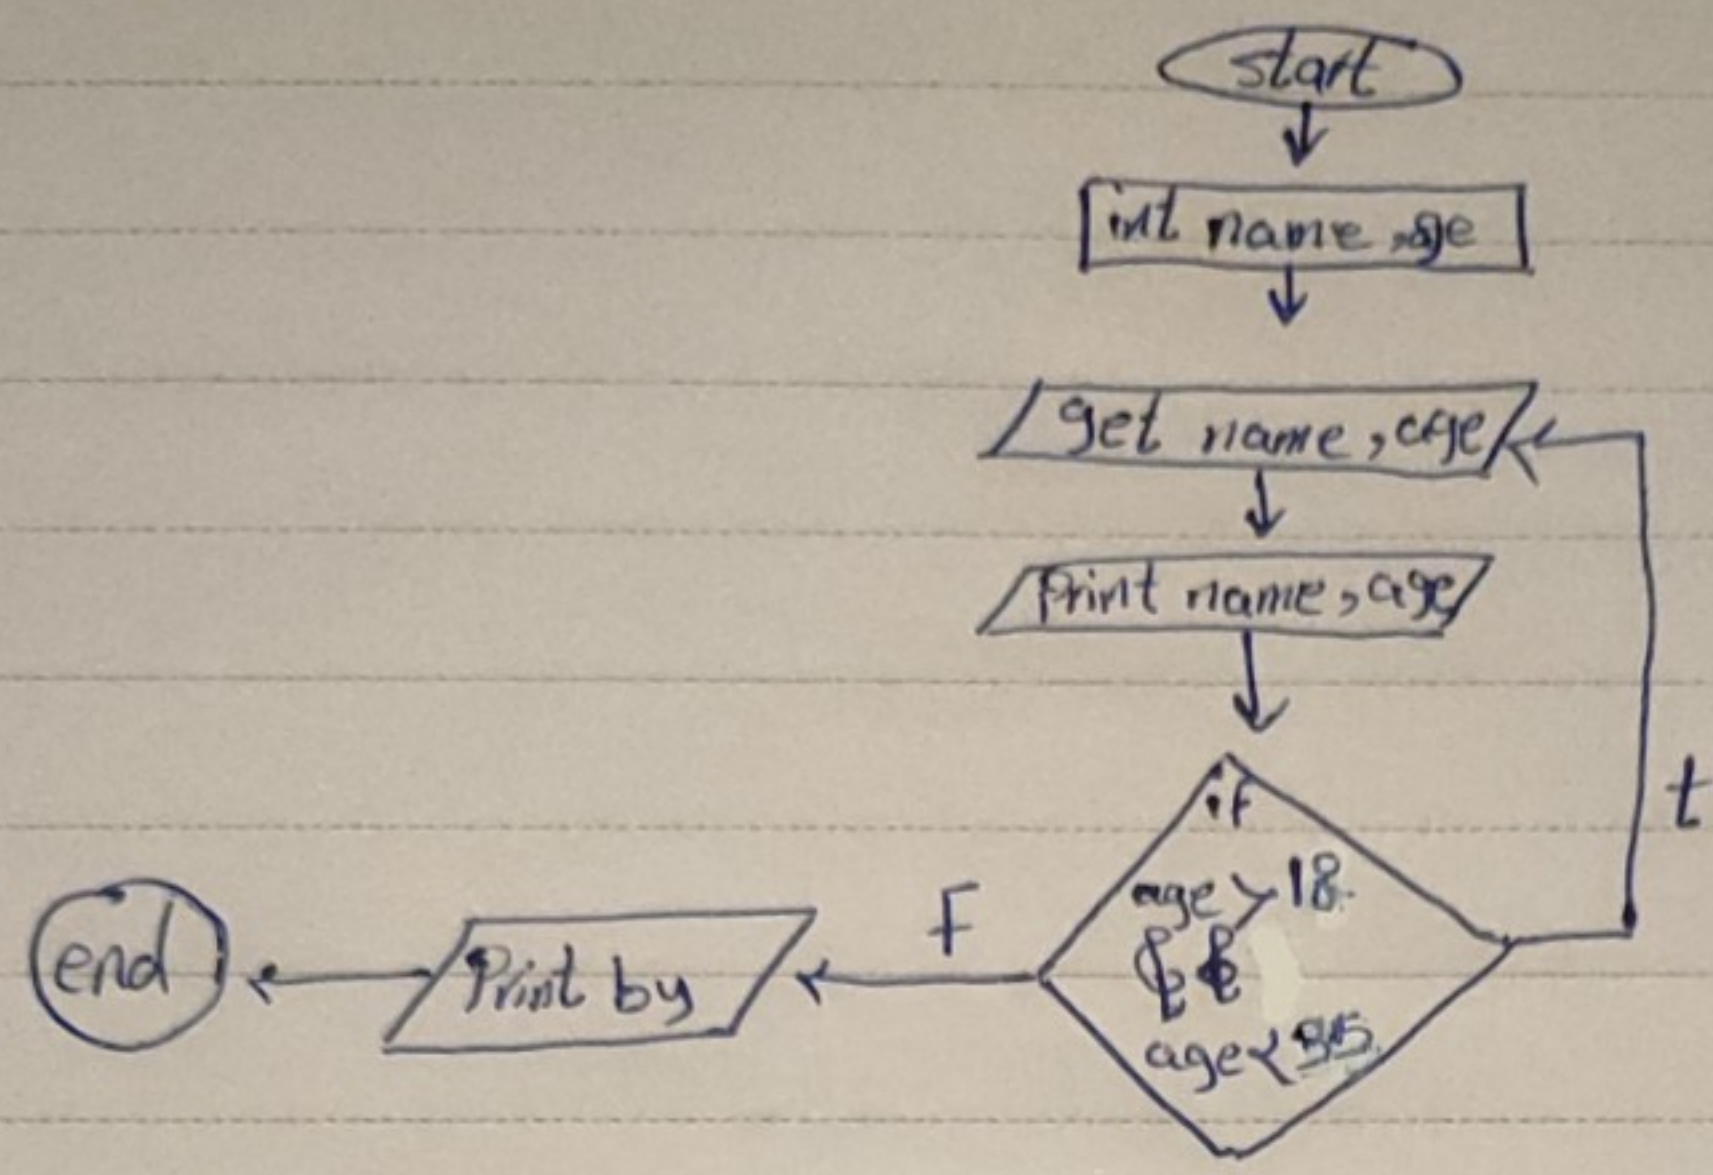 start
int name, age
get name, age
Print name, age
if
age > 18
&&
age <
t
F
Print by
end